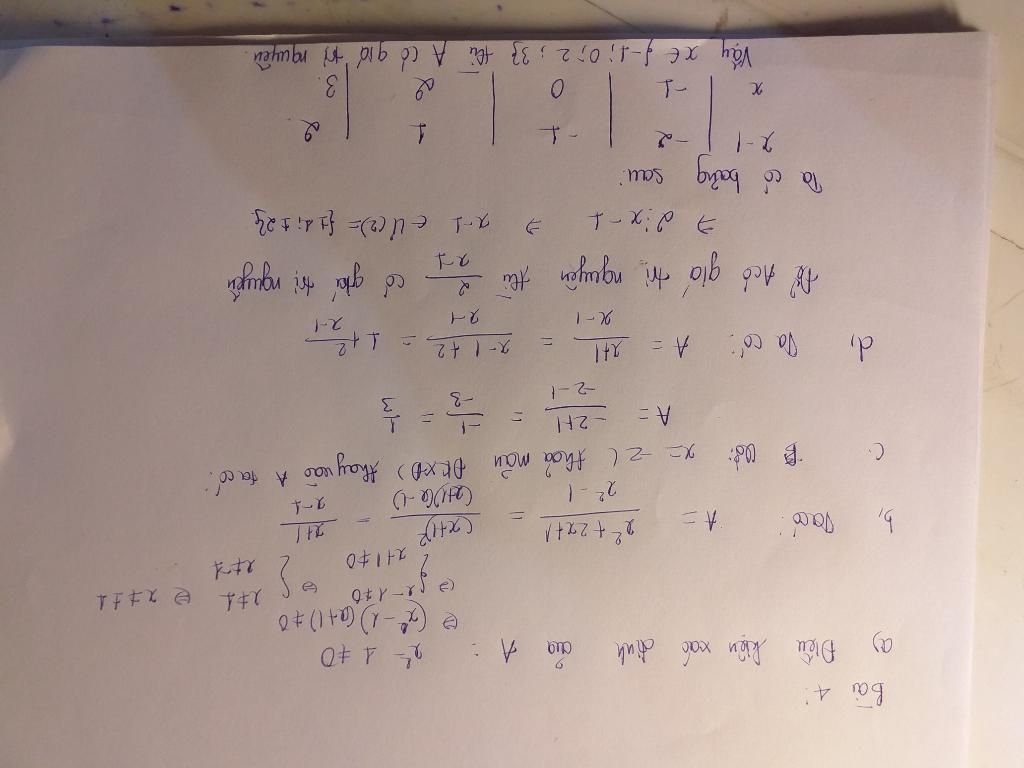 Bài 4:
a) Điều kiện xác định của A : x² - 1 ≠ 0
⇔ (x² - 1)(x+1) ≠ 0
⇔ { x - 1 ≠ 0 ⇔ { x ≠ 1 ⇔ x ≠ ± 1
x+1 ≠ 0 x ≠ -1
b, Ta có: A = (x² + 2x+1)/(x² - 1) = (x+1)²/((x+1)(x-1)) = (x+1)/(x-1)
c. Với x = -2 ( thỏa mãn ĐKXĐ) thay vào A ta có:
A = (-2+1)/(-2-1) = (-1)/(-3) = 1/3
d, Ta có: A = (x+1)/(x-1) = (x-1+2)/(x-1) = 1 + 2/(x-1)
Để A có giá trị nguyên thì 2/(x-1) có giá trị nguyên
⇒ 2 ⋮ x - 1 ⇒ x-1 ∈ Ư(2) = {±1; ±2}
Ta có bảng sau:
x-1 | -2 | -1 | 1 | 2
x | -1 | 0 | 2 | 3
Vậy x ∈ {-1; 0; 2; 3} thì A có giá trị nguyên.